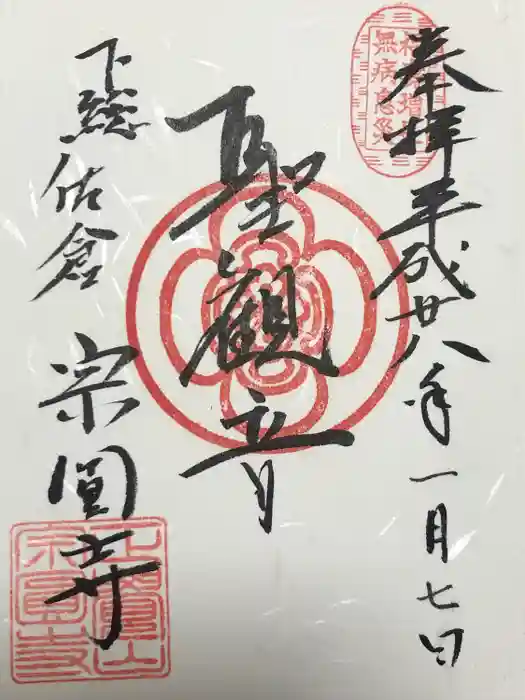 奉拝 平成廿八年一月七日
無病息災
聖観音
下総佐倉 宗圓寺